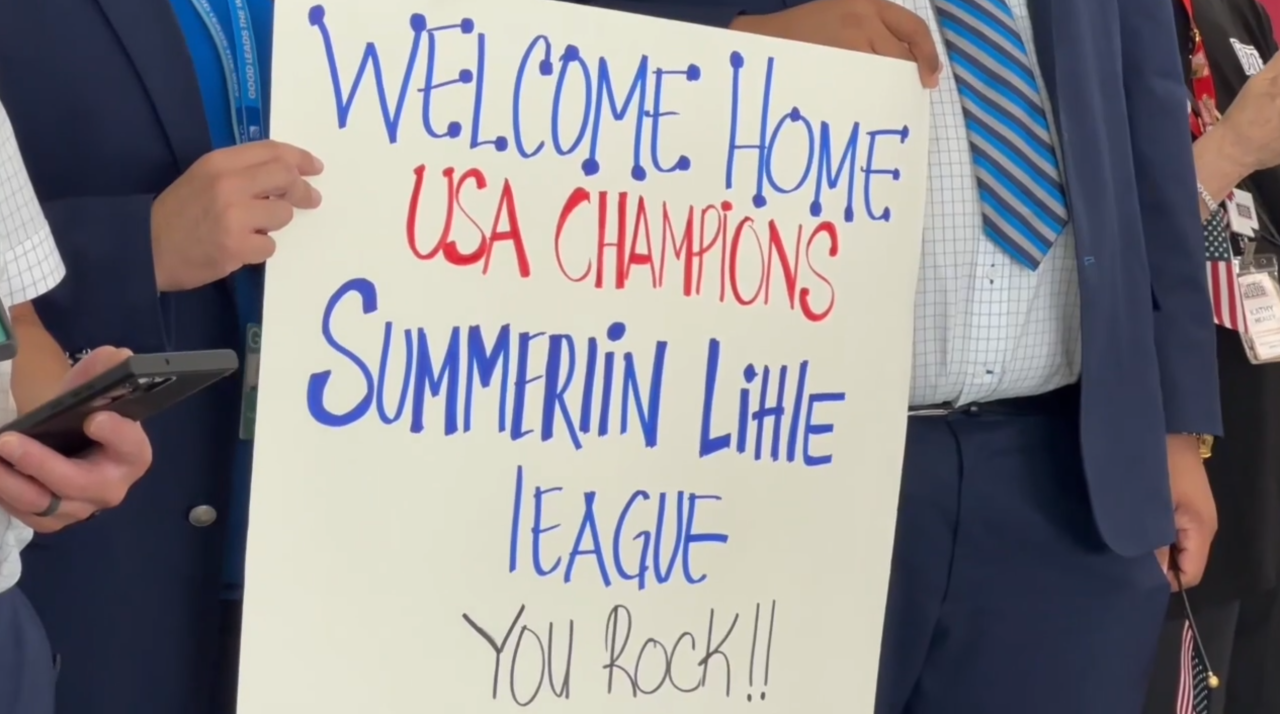 WELCOME HOME
USA CHAMPIONS
SUMMERLIN LITTLE
LEAGUE
YOU ROCK!!
GOOD LEADS THE
KATHY